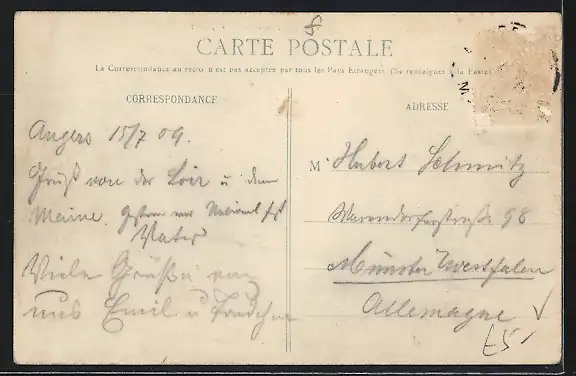 8
CARTE POSTALE
La Correspondance au recto n'est pas acceptée par tous les Pays Etrangers. (Se renseigner à la Poste)
CORRESPONDANCE
ADRESSE
Angers 15/7 09.
Gruß von der Loir u dem
Maine. Gestern war Nationalfest
Vater
Viele Grüße von
uns Emil u
M Hubert Schmitz
Warendorferstraße 98
Münster Westfalen
Allemagne